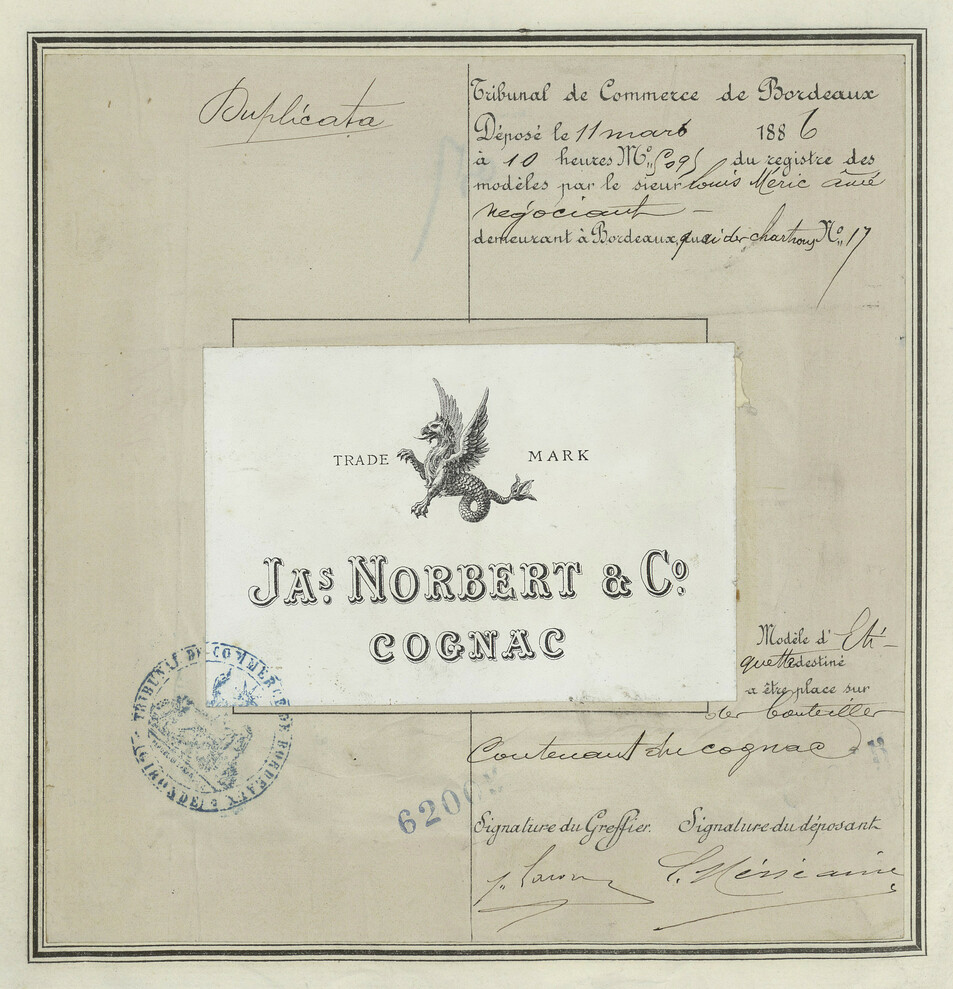 Duplicata
Tribunal de Commerce de Bordeaux
Déposé le 11 mars 1886
à 10 heures No. du registre des
modèles par le sieur Louis Méric aîné
négociant
demeurant à Bordeaux, quai des chartrons No. 17
TRADE MARK
JAS. NORBERT & CO.
COGNAC
Modèle d'Eti-
quette destiné
a être place sur
des bouteilles
Contenant du cognac
TRIBUNAL DE COMMERCE DE BORDEAUX
(GIRONDE)
Signature du Greffier. Signature du déposant
L. Méric aîné